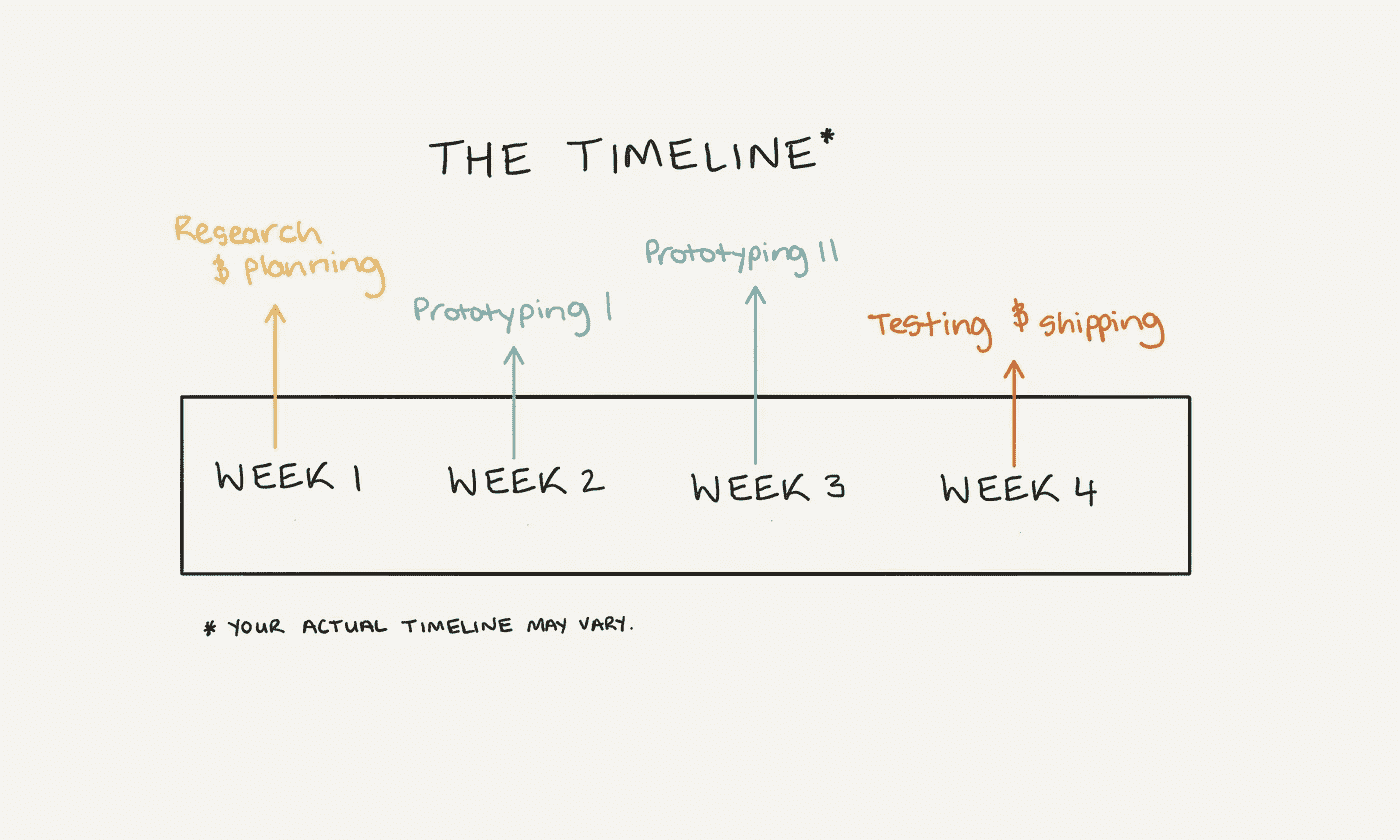 THE TIMELINE*
Research
& planning
Prototyping I
Prototyping II
Testing & shipping
WEEK 1
WEEK 2
WEEK 3
WEEK 4
* YOUR ACTUAL TIMELINE MAY VARY.